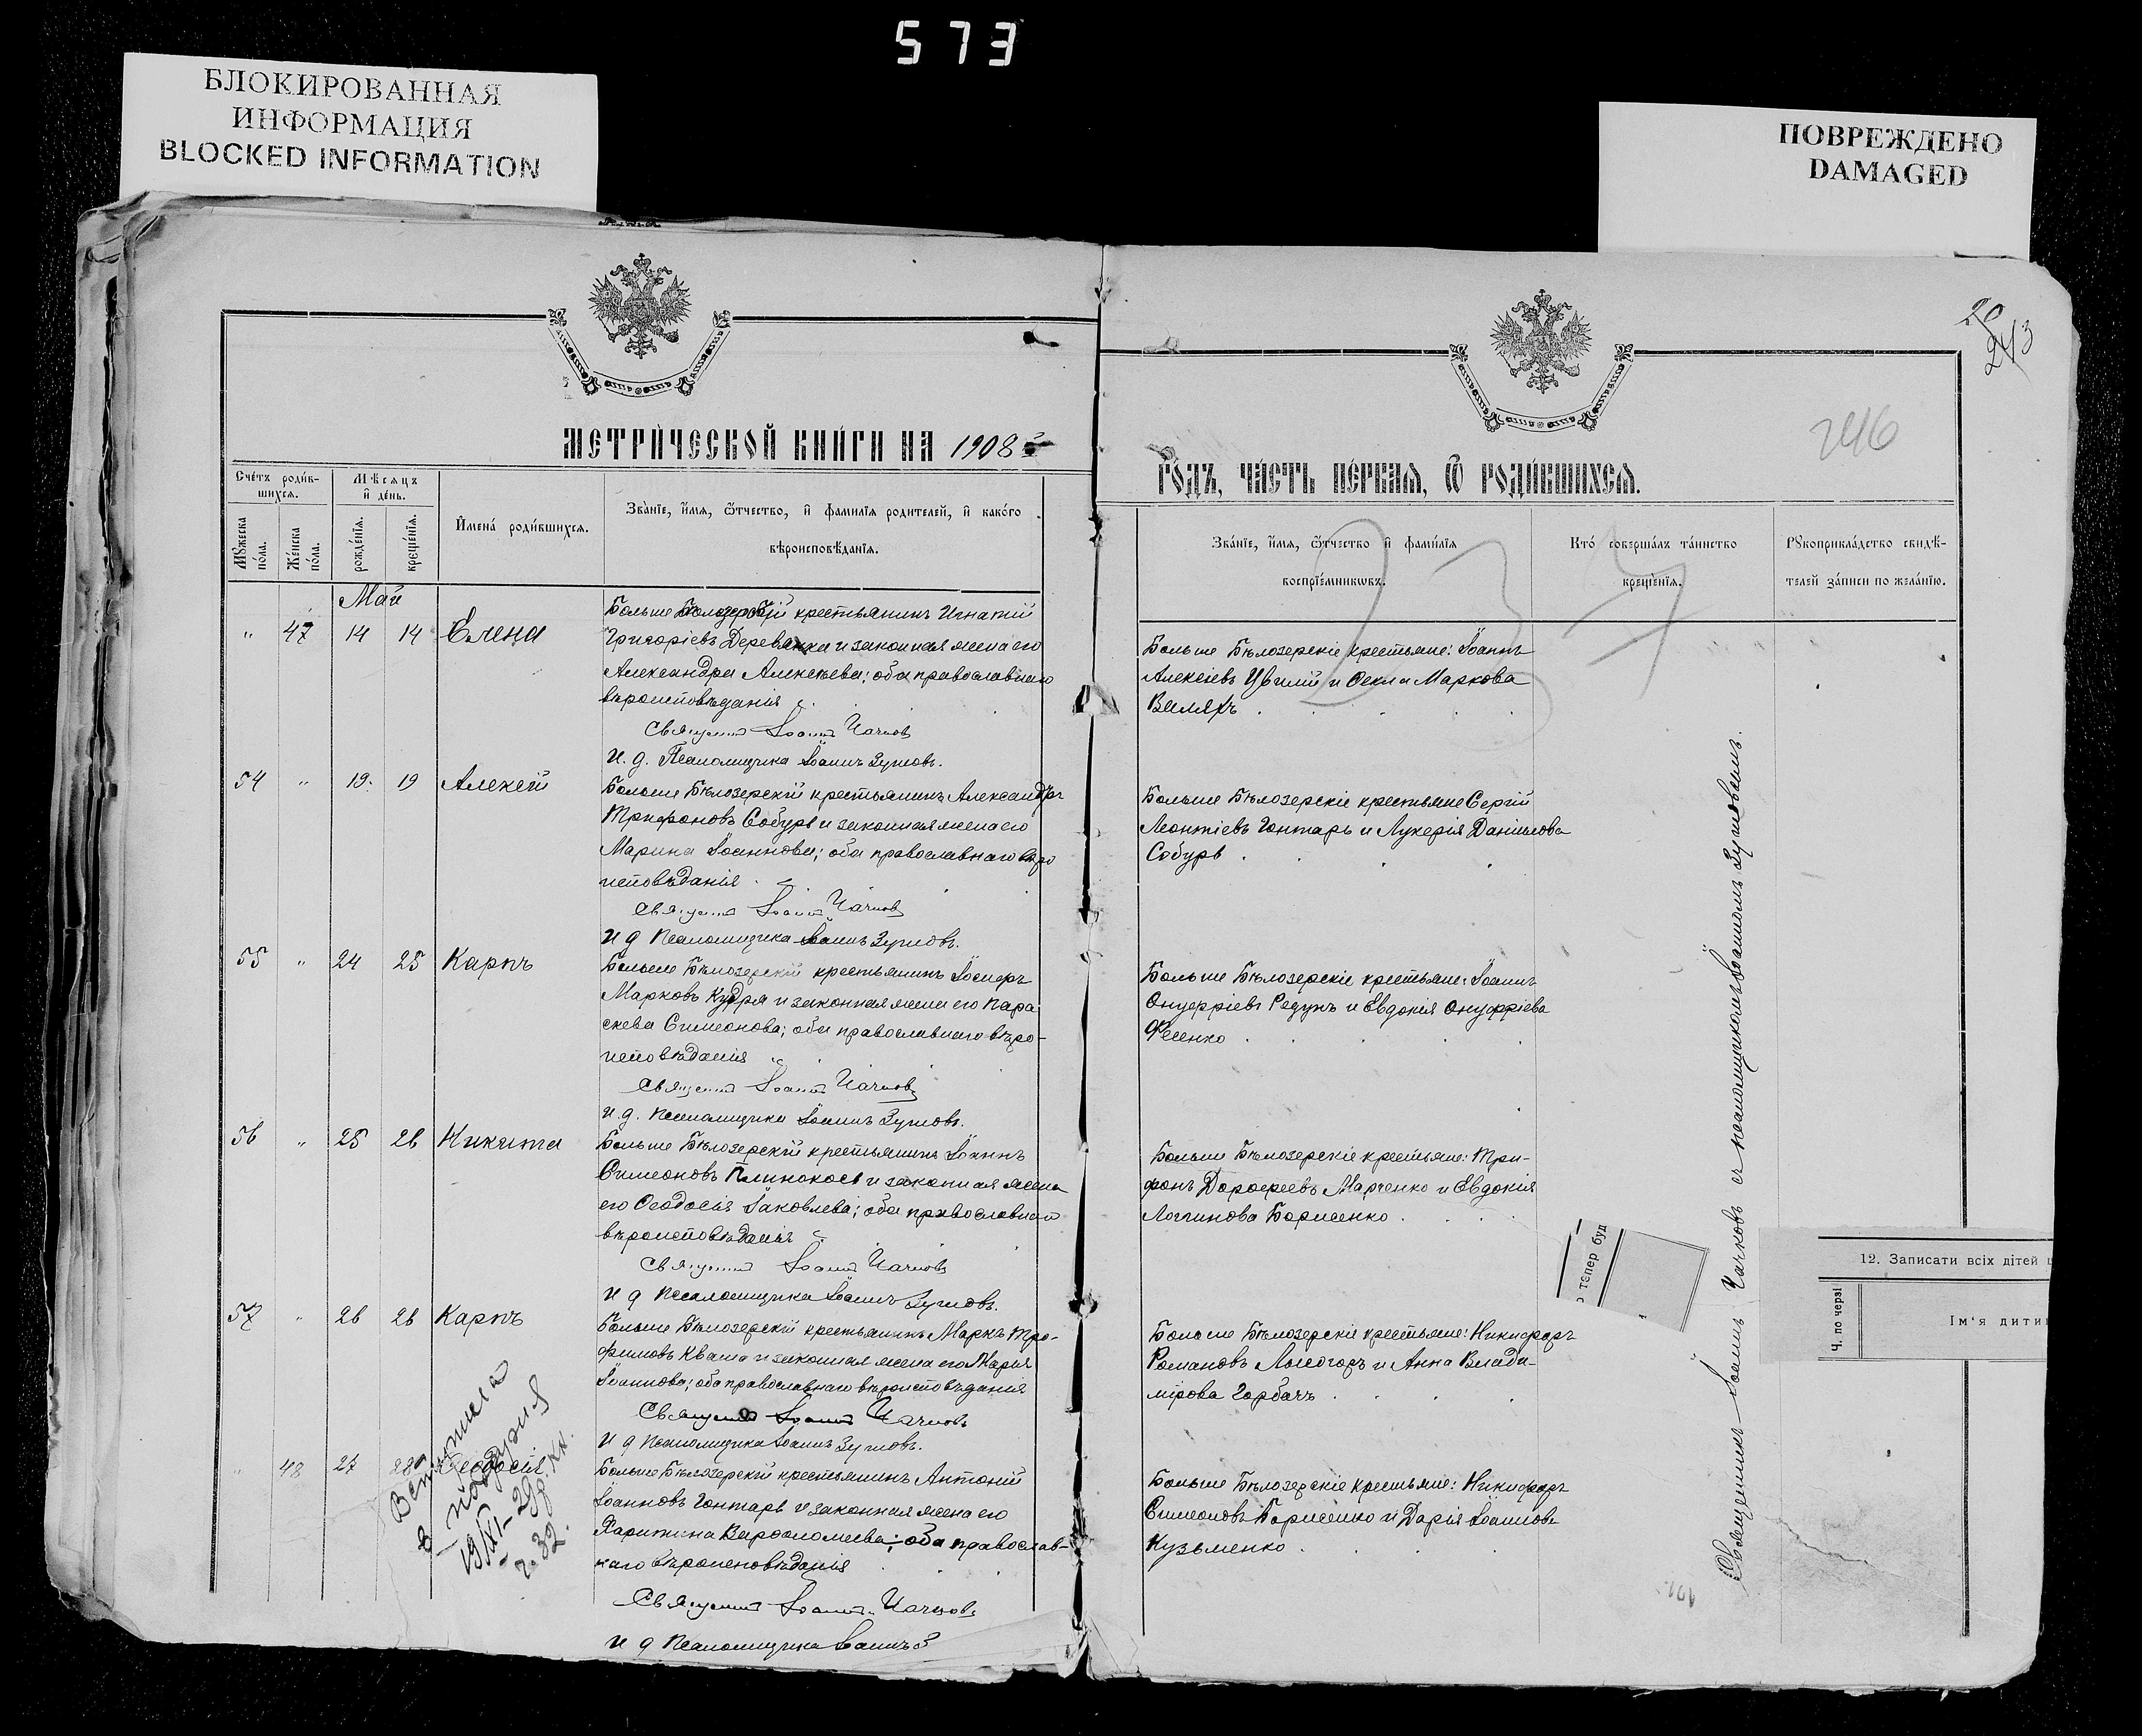 573
БЛОКИРОВАННАЯ
ИНФОРМАЦИЯ
BLOCKED INFORMATION
ПОВРЕЖДЕНО
DAMAGED
20
243
246
МЕТРИЧЕСКОЙ КНИГИ НА 1908
ГОДЪ, ЧАСТЬ ПЕРВАЯ, Ѿ РОДИВШИХСЯ.
Счетъ родив-
шихся.
Мужеска
пола.
Женска
пола.
Мѣсяцъ
и день.
рожденія.
крещенія.
Имена родившихся.
Званіе, имя, ѿтчество, и фамилія родителей, и какого
вѣроисповѣданія.
Званіе, имя, ѿтчество и фамилія
воспріемниковъ.
Кто совершалъ таинство
крещенія.
Рукоприкладство свидѣ-
телей записи по желанію.
Май
" 47 14 14 Елена
Больше Бѣлозерскій крестьянинъ Игнатій
Григоріевъ Деревянка и законная жена его
Александра Алексѣева; оба православнаго
вѣроисповѣданія
Священникъ Іоаннъ Чачковъ
И. д. Псаломщика Іоаннъ Зуповъ.
Больше Бѣлозерскіе крестьяне: Іоаннъ
Алексіевъ Цвилій и Ѳекла Маркова
54 " 19 19 Алексій
Больше Бѣлозерскій крестьянинъ Александръ
Трифоновъ Собурь и законная жена его
Марина Іоаннова; оба православнаго вѣро
исповѣданія
Священникъ Іоаннъ Чачковъ
И д Псаломщика Іоаннъ Зуповъ.
Больше Бѣлозерскіе крестьяне Сергій
Леонтіевъ Гонтарь и Лукерія Даніилова
Собурь
55 " 24 25 Карпъ
Больше Бѣлозерскій крестьянинъ Іосифъ
Марковъ Кудря и законная жена его Пара
скева Симеонова; оба православнаго вѣро-
исповѣданія
Священникъ Іоаннъ Чачковъ
И. д. Псаломщика Іоаннъ Зуповъ.
Больше Бѣлозерскіе крестьяне: Іоаннъ
Онуфріевъ Редунъ и Евдокія Онуфріева
Фесенко
56 " 25 26 Никита
Больше Бѣлозерскій крестьянинъ Іоаннъ
Симеоновъ Плинокосъ и законная жена
его Ѳеодосія Іаковлева; оба православнаго
вѣроисповѣданія
Священникъ Іоаннъ Чачковъ
И д Псаломщика Іоаннъ Зуповъ.
Больше Бѣлозерскіе крестьяне: Три-
фонъ Дорофеевъ Марченко и Евдокія
Логгинова Борисенко
57 " 26 26 Карпъ
Больше Бѣлозерскій крестьянинъ Маркъ Тро-
фимовъ Кваша и законная жена его Марія
Іоаннова; оба православнаго вѣроисповѣданія
Священникъ Іоаннъ Чачковъ
И д Псаломщика Іоаннъ Зуповъ.
Больше Бѣлозерскіе крестьяне: Никифоръ
Романовъ Лысогоръ и Анна Влади-
мірова Горбачъ
" 48 27 28 Ѳеодосія
Больше Бѣлозерскій крестьянинъ Антоній
Іоанновъ Гонтарь и законная жена его
Харитина Варфоломеева; оба православ-
наго вѣроисповѣданія
Священникъ Іоаннъ Чачковъ
И д Псаломщика Іоаннъ З
Больше Бѣлозерскіе крестьяне: Никифоръ
Симеоновъ Борисенко и Дарія Іоаннова
Кузьменко
19/XI-29
Священникъ Іоаннъ Чачковъ съ псаломщикомъ Іоанномъ Зуповымъ.
тепер буд
12. Записати всіх дітей
Ч. по черзі
Ім'я дити